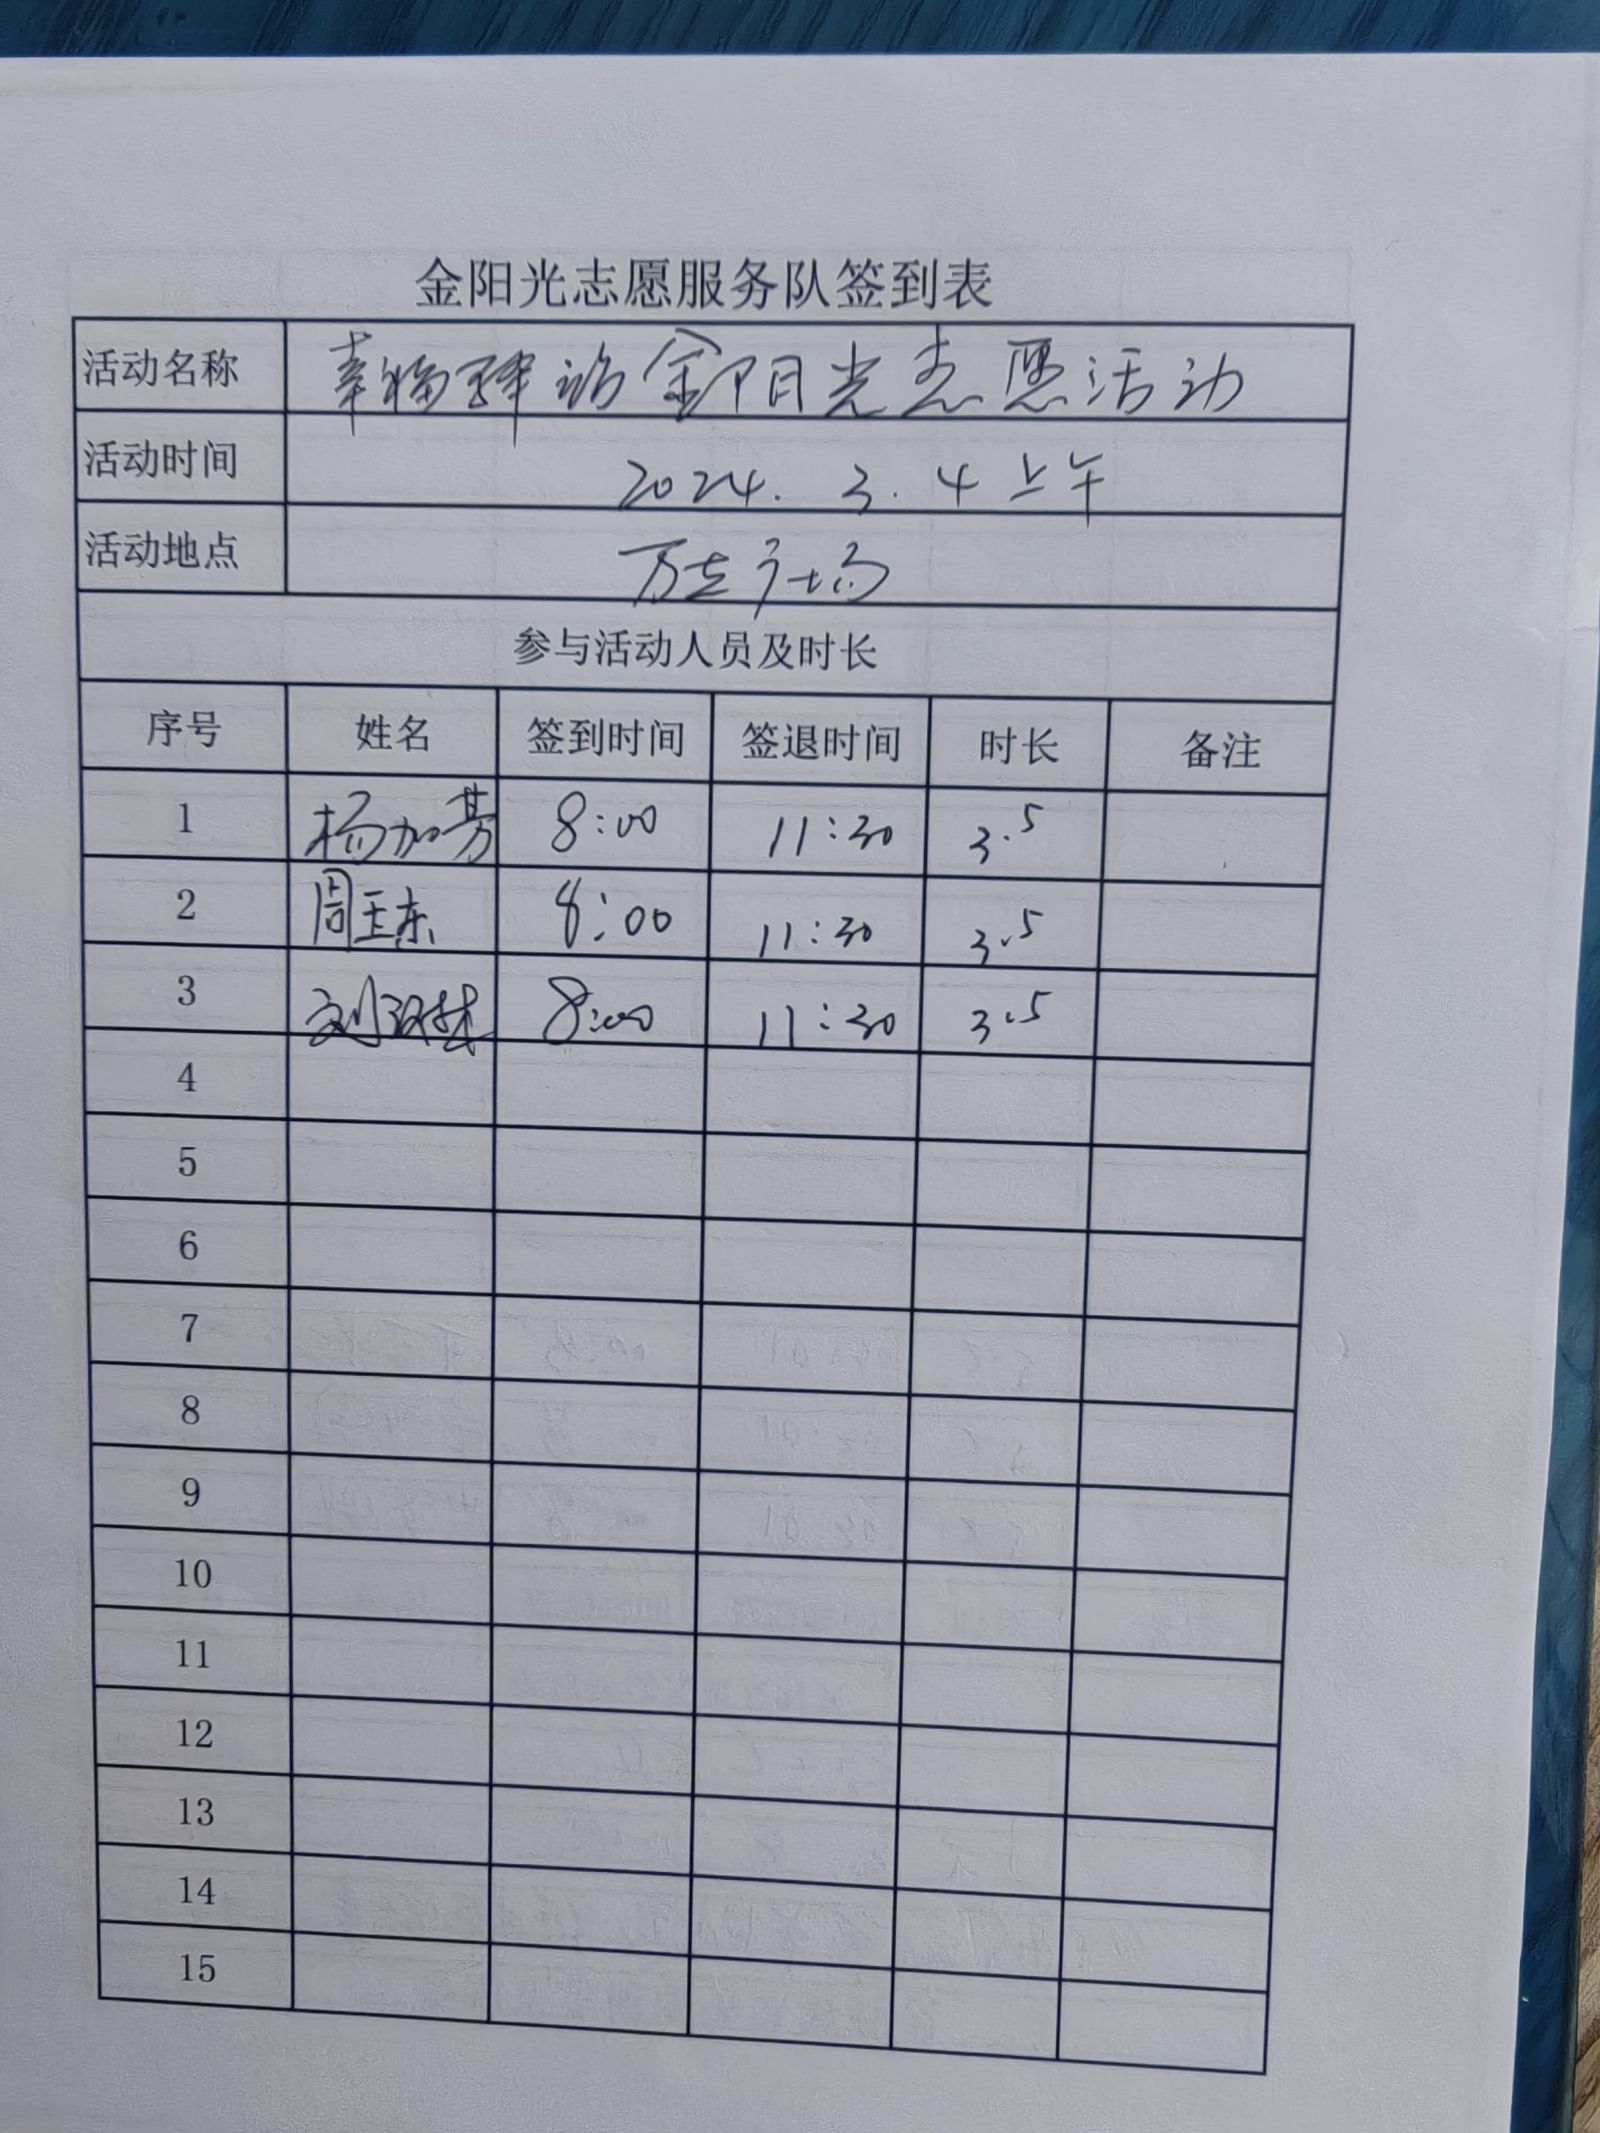 金阳光志愿服务队签到表
活动名称 幸福驿站金阳光志愿活动
活动时间 2024.3.4上午
活动地点 万达广场
参与活动人员及时长
序号 姓名 签到时间 签退时间 时长 备注
1 杨加芳 8:00 11:30 3.5
2 周玉东 8:00 11:30 3.5
3 刘 8:00 11:30 3.5
4
5
6
7
8
9
10
11
12
13
14
15